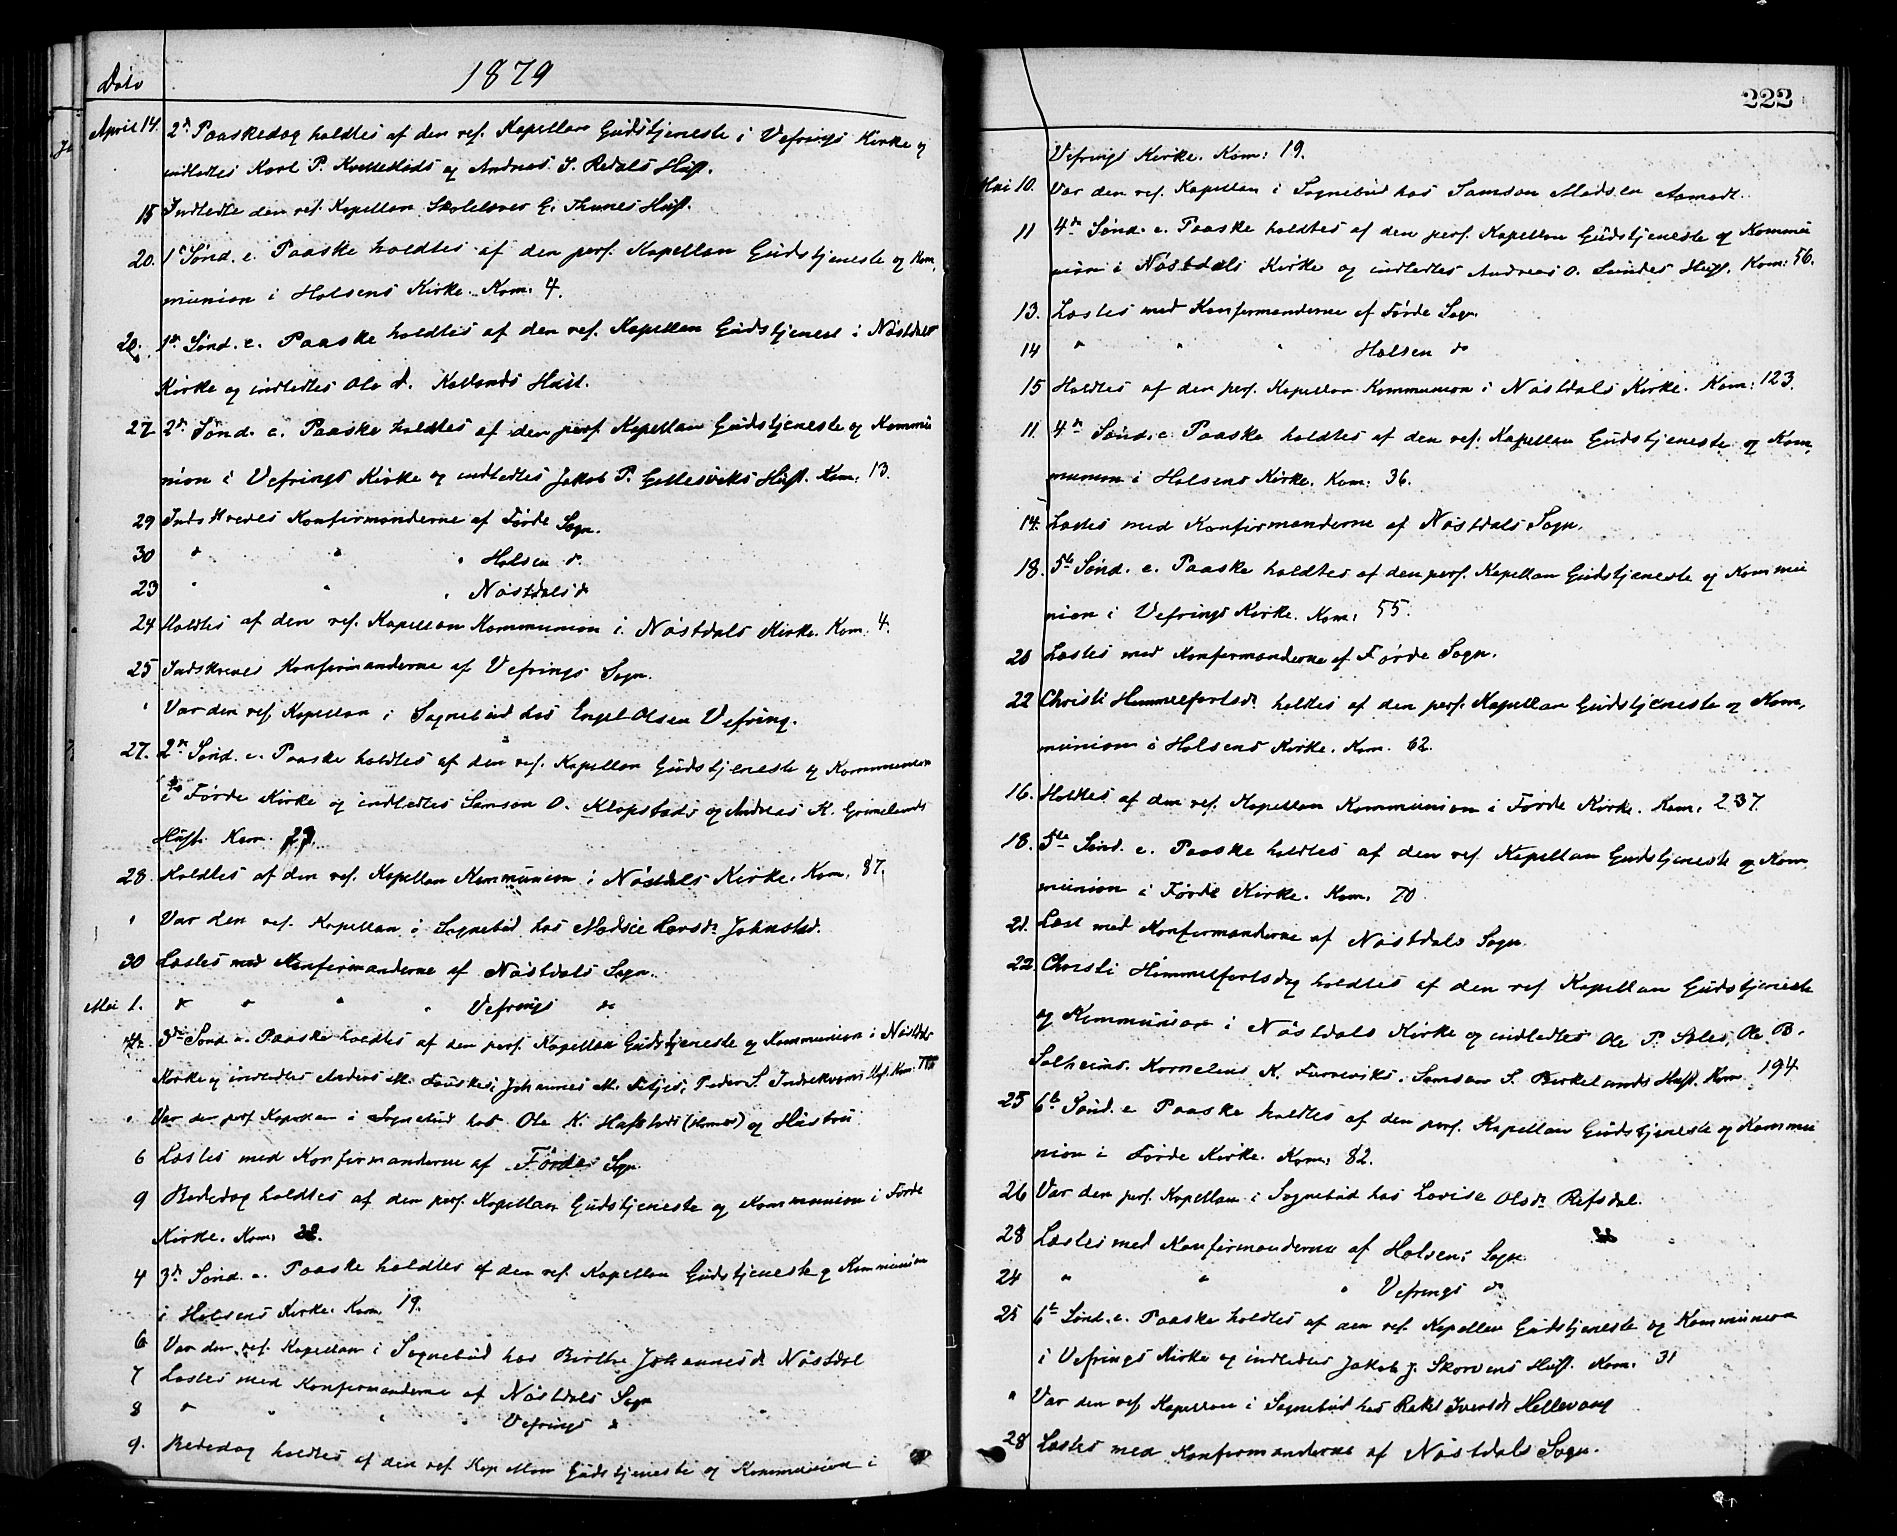 Dato
1879
April 14. 2den Paaskedag holdtes af den res. Kapellan Gudstjeneste i Vefrings Kirke og
indledtes Karl P. Kvellestads og Andreas J. Redals Hust.
15 Indledte den res. Kapellan Skolelærer E. Thunes Hust.
20. 1e Sønd. e. Paaske holdtes af den pers. Kapellan Gudstjeneste og Kom,
munion i Holsens Kirke. Kom. 4.
20. 1ste Sønd. e. Paaske holdtes af den res. Kapellan Gudstjenest i Nøstdals
Kirke og indledtes Ole A. Kallands Hust.
27 2den Sønd. e. Paaske holdtes af den pers Kapellan Gudstjeneste og Kommu
nion i Vefrings Kirke og indledtes Jakob P. Gjellesviks Hust. Kom. 13.
29 Indskreves Konfirmanderne af Førde Sogn.
30 " " " Holsen do
23 " " " Nøstdals do
24 Holdtes af den res. Kapellan Kommunion i Nøstdals Kirke. Kom. 4.
25 Indskreves Konfirmanderne af Vefrings Sogn.
" Var den res Kapellan i Sognebud hos Engel Olsen Vefring.
27. 2den Sønd. e. Paaske holdtes af den res. Kapellan Gudstjeneste og Kommunion
i Førde Kirke og indledtes Samson O. Klopstads og Andreas K. Grimelands
Hust. Kom. 29.
28. Holdtes af den res. Kapellan Kommunion i Nøstdals Kirke. Kom. 87.
" Var den res. Kapellan i Sognebud hos Madsie Larsdr. Johnstad.
30 Læstes med Konfirmanderne af Nøstdals Sogn.
Mai 1. " " " " Vefrings do
4. 3die Sønd. e. Paaske holdtes af den pers. Kapellan Gudstjeneste og Kommunion i Nøstdals
Kirke og indledtes Anders M. Fauskes, Johannes M. Sitjes, Peder S. Indrekvams Hust. Kom.
" Var den pers Kapellan i Sognebud hos Ole K. Hafstads og Hustru
6 Læstes med Konfirmanderne af Førde Sogn
9 Bededag holdtes af den pers. Kapellan Gudstjeneste og Kommunion i Førde
Kirke. Kom. 38.
4 3die Sønd. e. Paaske holdtes af den res. Kapellan Gudstjeneste og Kommunion
i Holsens Kirke. Kom. 19.
6 Var den res. Kapellan i Sognebud hos Birthe Johannesdr Nøstdal
7 Læstes med Konfirmanderne af Nøstdals Sogn
8 " " " " Vefrings do
9. Bededag holdtes af den res Kapellan Gudstjeneste og Kommunion i
222
Vefrings Kirke. Kom: 19.
Mai 10. Var den res. Kapellan i Sognebud hos Samson Madsen Aamodt.
11 4de Sønd. e. Paaske holdtes af den pers. Kapellan Gudstjeneste og Kommu
nion i Nøstdals Kirke og indledtes Andreas O. Sundes Hust. Kom: 56.
13. Læstes med Konfirmanderne af Førde Sogn
14 " " " Holsen do
15 Holdtes af den pers. Kapellan Kommunion i Nøstdals Kirke. Kom: 123.
11. 4de Sønd. e. Paaske holdtes af den res. Kapellan Gudstjeneste og Kom,
munion i Holsens Kirke. Kom: 36.
14. Læstes med Konfirmanderne af Nøstdals Sogn.
18. 5te Sønd. e. Paaske holdtes af den pers. Kapellan Gudstjeneste og Kommu
nion i Vefrings Kirke. Kom: 55.
20 Læstes med Konfirmanderne af Førde Sogn.
22 Christi Himmelfartsd. holdtes af den pers. Kapellan Gudstjeneste og Kom,
munion i Holsens Kirke. Kom. 62.
16. Holdtes af den res. Kapellan Kommunion i Førde Kirke. Kom. 237.
18. 5te Sønd. e. Paaske holdtes af den res. Kapellan Gudstjeneste og Kom
munion i Førde Kirke. Kom. 70.
21. Læst med Konfirmanderne af Nøstdals Sogn.
22. Christi Himmelfartsdag holdtes af den res Kapellan Gudstjeneste
og Kommunion i Nøstdals Kirke og indledtes Ole P. Soles, Ole B.
Solheims. Kornelius K. Furreviks. Samson S. Birkelands Hust. Kom. 194
25 6te Sønd. e Paaske holdtes af den pers. Kapellan Gudstjeneste og Kommu
nion i Førde Kirke. Kom: 82.
26 Var den pers. Kapellan i Sognebud hos Lovise Olsdr. Refsdal.
28 Læstes med Konfirmanderne af Holsens Sogn
24 " " " Vefrings do
25 6te Sønd. e. Paaske holdtes af den res. Kapellan Gudstjeneste og Kommunion
i Vefrings Kirke og indledtes Jakob J. Skorvens Hust. Kom. 31
" Var den res Kapellan i Sognebud hos Rakel Iversdr Hellevang
28 Læstes med Konfirmanderne af Nøstdals Sogn.